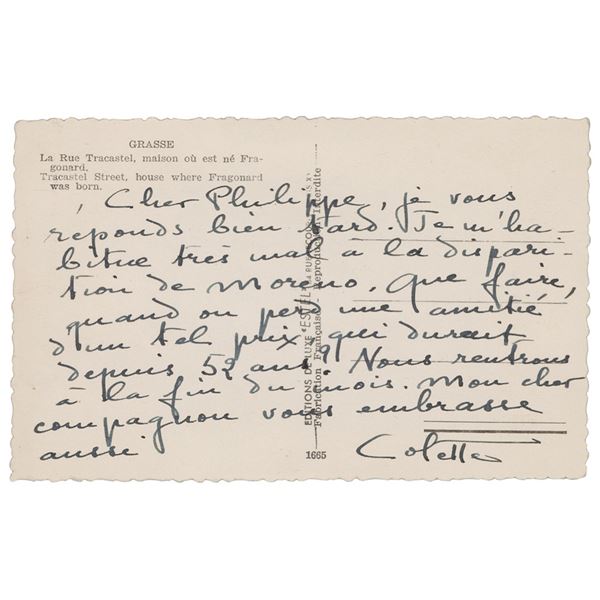 GRASSE
La Rue Tracastel, maison où est né Fra-
gonard.
Tracastel Street, house where Fragonard
was born.
Cher Philippe, je vous
réponds bien tard. Je m'ha-
bitue très mal à la dispari-
tion de Moreno. Que faire,
quand on perd une amitié
d'un tel prix, qui durait
depuis 52 ans? Nous rentrons
à la fin du mois. Mon cher
compagnon vous embrasse
aussi
Colette
EDITIONS DE LUXE "ESTEL"
Fabrication Française Reproduction Interdite
1665